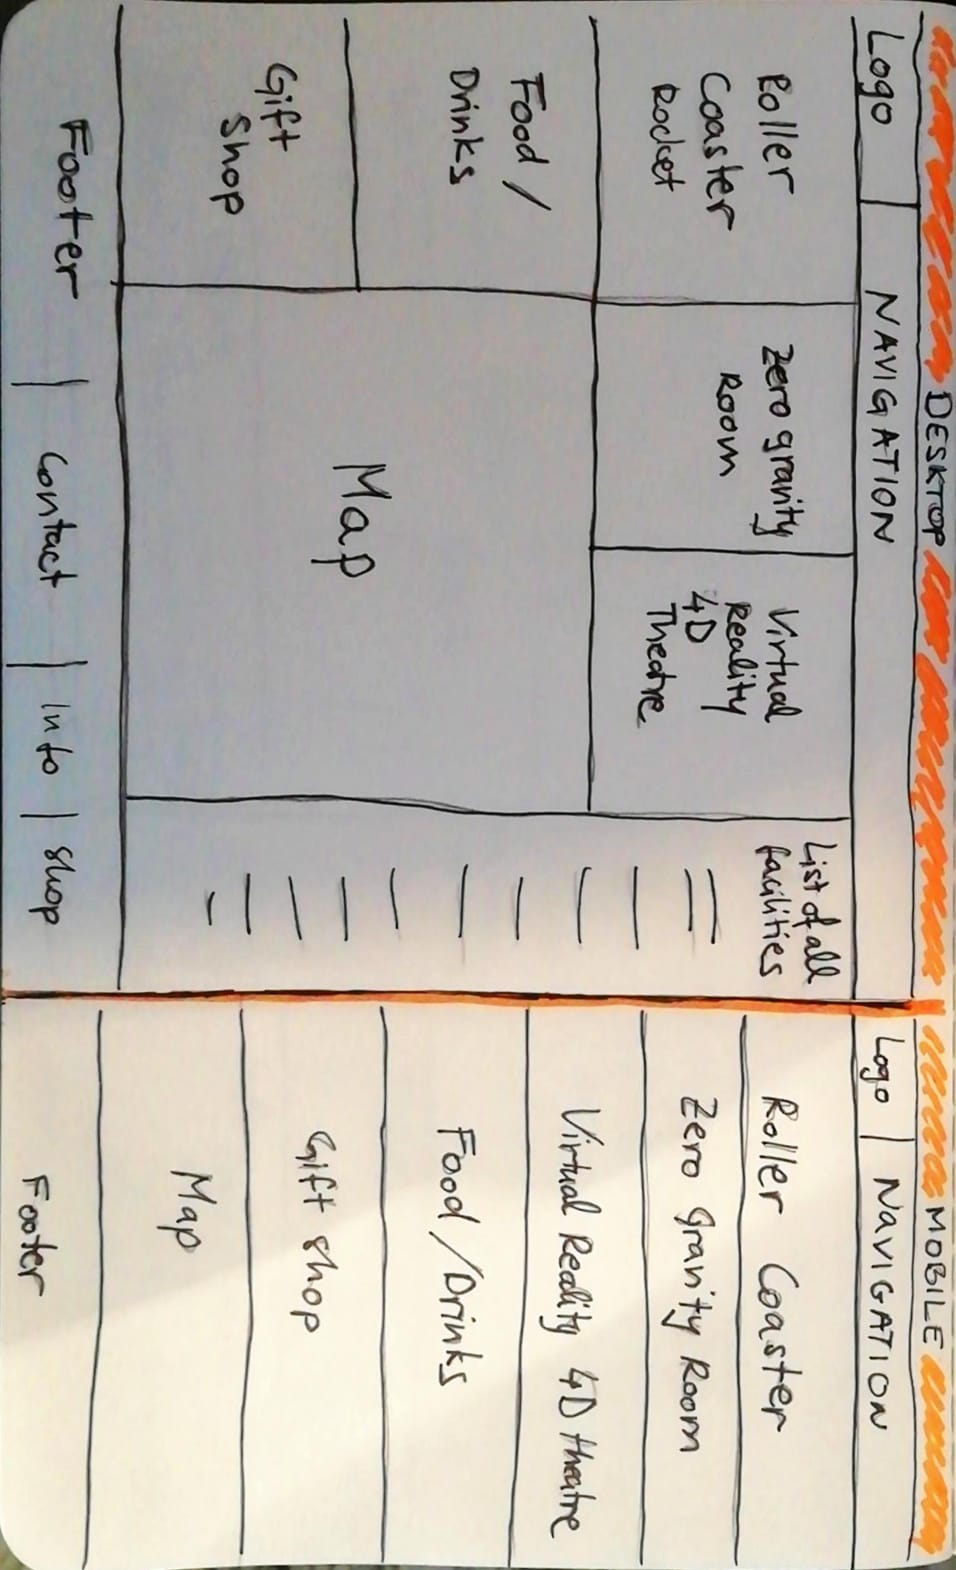 DESKTOP
Logo
NAVIGATION
Roller
Coaster
Rocket
Zero gravity
Room
Virtual
Reality
4D
Theatre
List of all
facilities
Food /
Drinks
Gift
Shop
Map
Footer
Contact
Info
Shop
MOBILE
Logo
NAVIGATION
Roller Coaster
Zero Gravity Room
Virtual Reality 4D theatre
Food/Drinks
Gift shop
Map
Footer